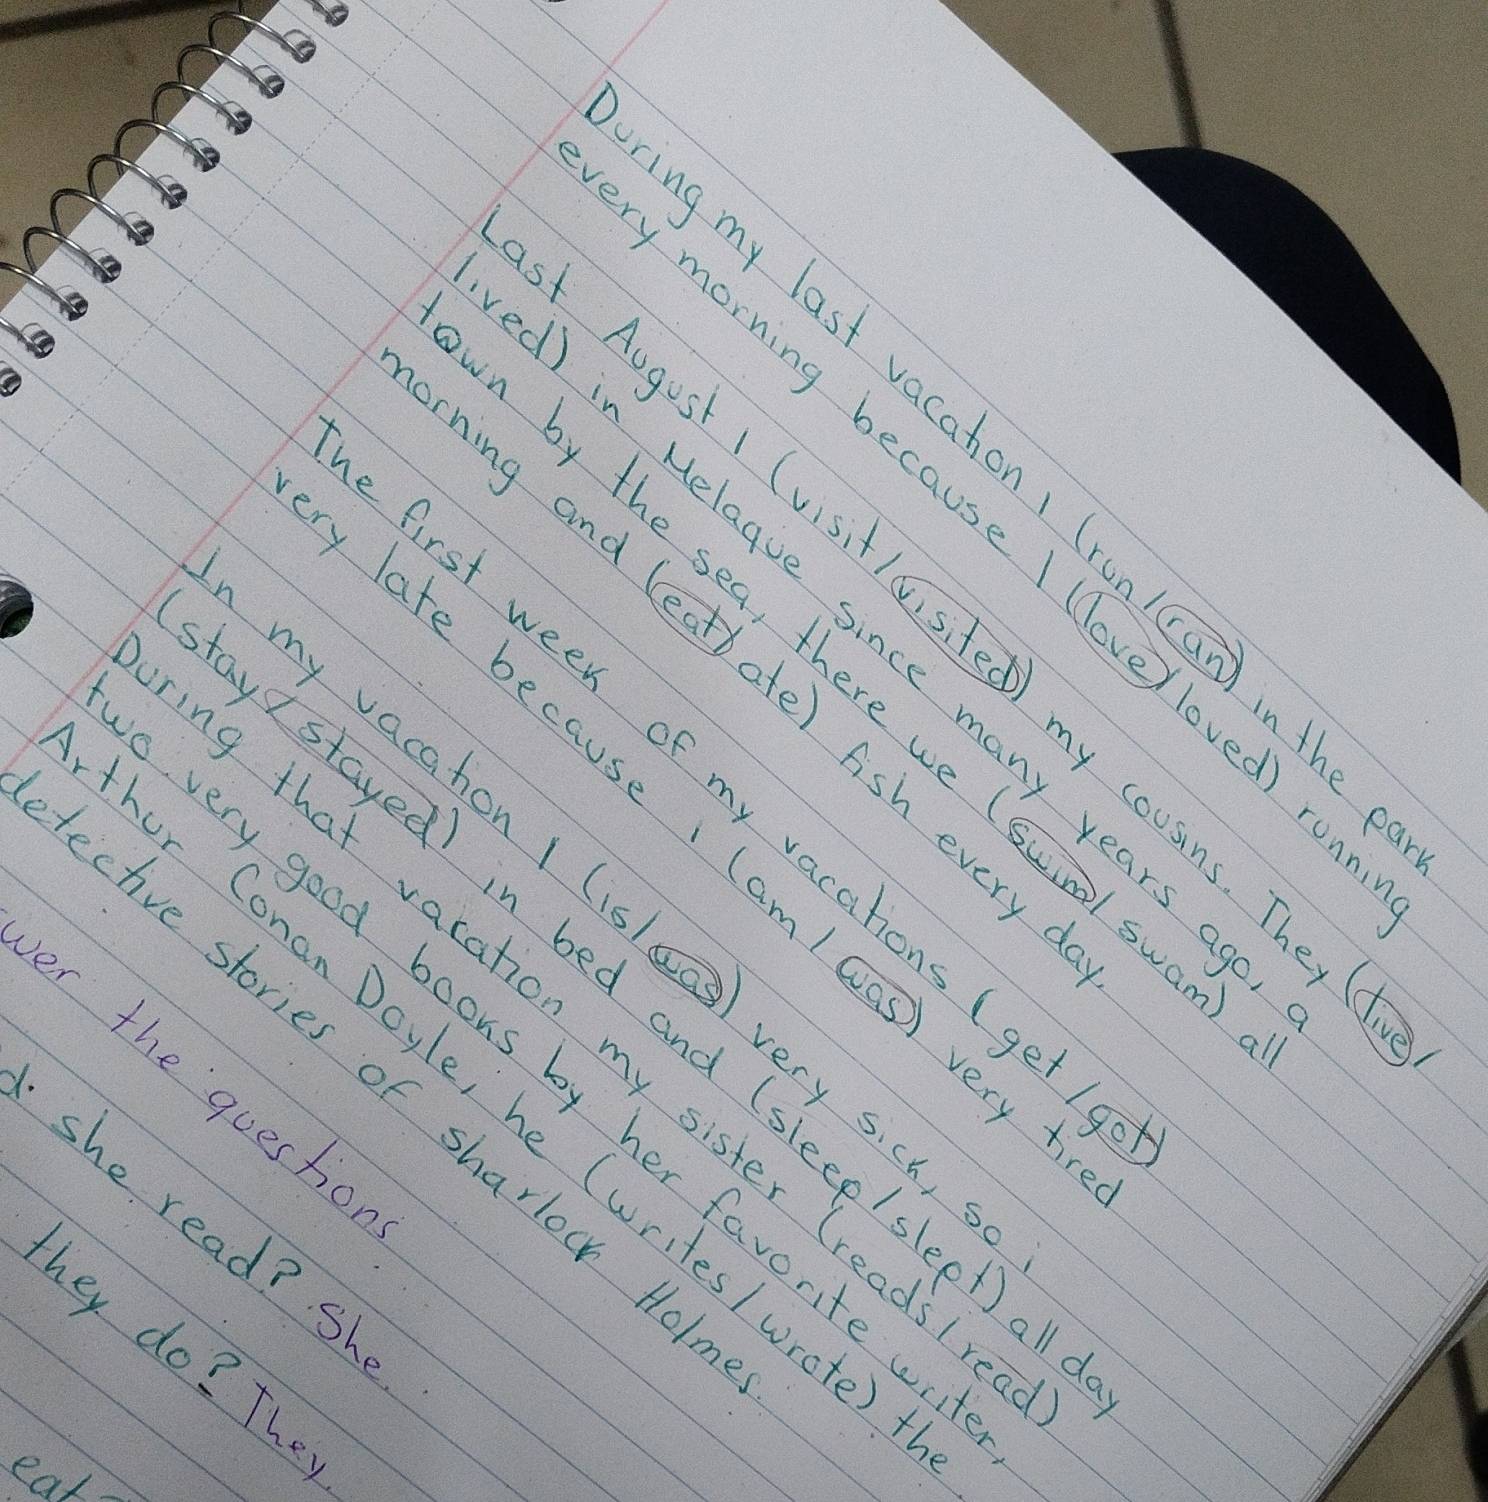 During my last vacation I (run/ran) in the park
every morning because I (love/loved) running
Last August I (visit/visited) my cousins. They (live/
lived) in Melaque since many years ago, a
town by the sea, there we (swim/swam) all
morning and (eat/ate) fish every day.
The first week of my vacations (get/got)
very late because i (am/was) very tired
In my vacation I (is/was) very sick, so i
(stay/stayed) in bed and (sleep/slept) all day
During that vacation my sister (reads/read)
two very good books by her favorite writer,
Arthur Conan Doyle, he (writes/wrote) the
detective stories of sharlock Holmes.
wer the questions
d. she read? She
they do? They
eat